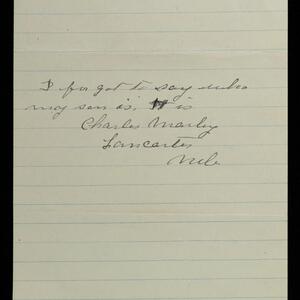 I for got to say who
my son is, it is
Charles Marley
Lancaster